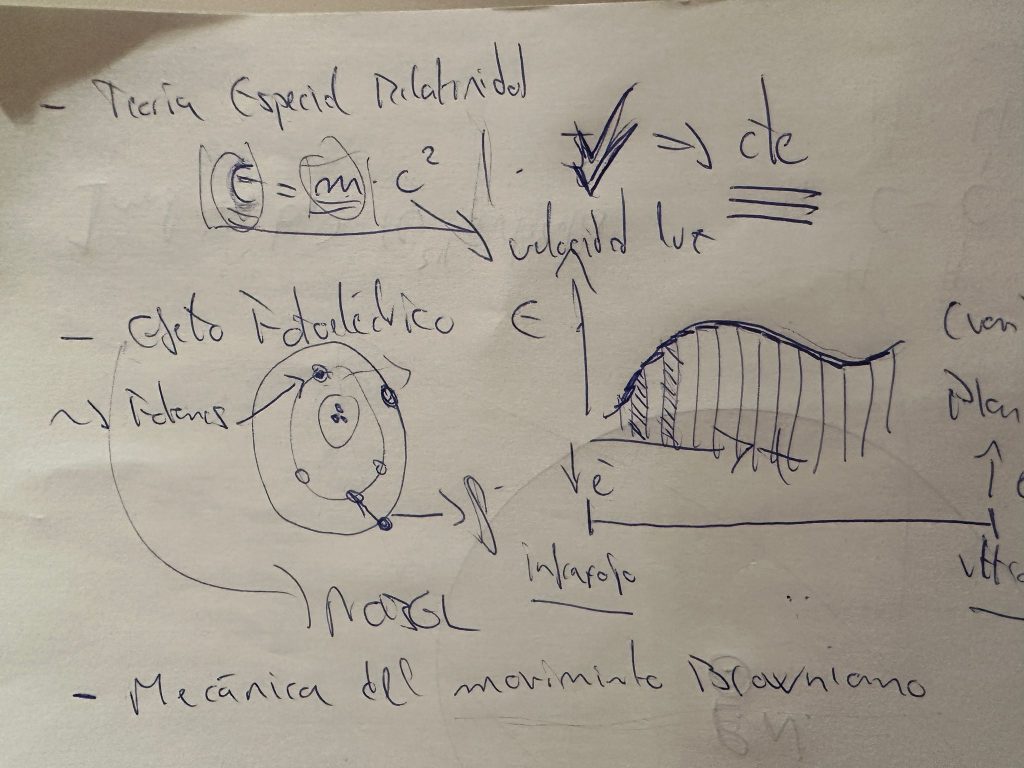 - Teoría Especial Relatividad
E = m · c²
V => cte
velocidad luz
- Efeto Fotoeléctrico
E
Cuan
Plan
~> Fotones
e-
t
infrarojo
ultra
NOBEL
- Mecánica del movimiento Browniano